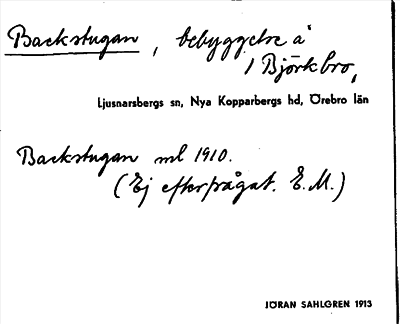 Backstugan, bebyggelse å
1 Björkbro,
Ljusnarsbergs sn, Nya Kopparbergs hd, Örebro län
Backstugan ml 1910.
(Ej efterfrågat. E.M.)
JÖRAN SAHLGREN 1913